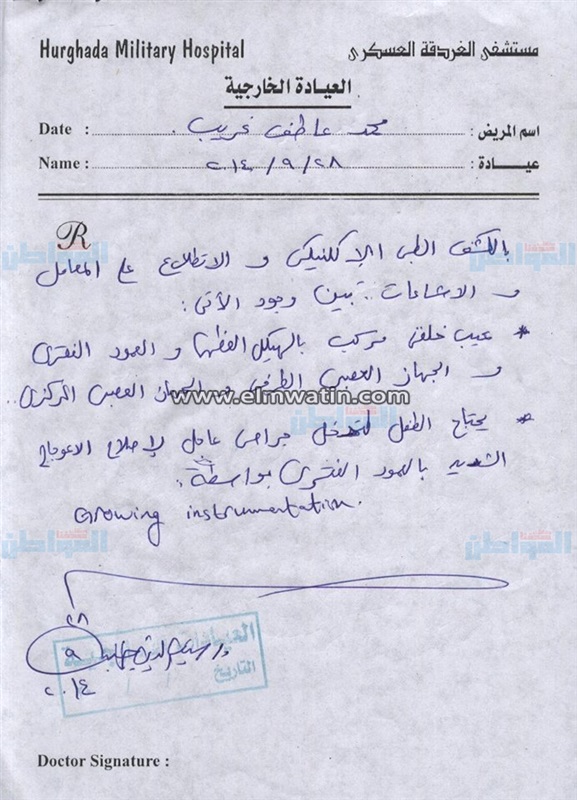 Hurghada Military Hospital
مستشفى الغردقة العسكرى
العيادة الخارجية
Date : محمد عاطف غريب . اسم المريض :
Name : ٢٠١٤/٩/٢٨ عيادة :
R
بالكشف الطبى الإكلينيكى و الاطلاع على المعامل
و الاشاعات : تبين وجود الآتى :
* عيب خلقى مركب بالهيكل العظمى و العمود الفقرى
و الجهاز العصبى الطرفى و الجهاز العصبى المركزى .
www.elmwatin.com
* يحتاج الطفل لتدخل جراحى عاجل لإصلاح الاعوجاج
الشديد بالعمود الفقرى بواسطة :
Growing instrumentation.
المواطن
٢٨
٩
٢٠١٤
التاريخ
Doctor Signature :